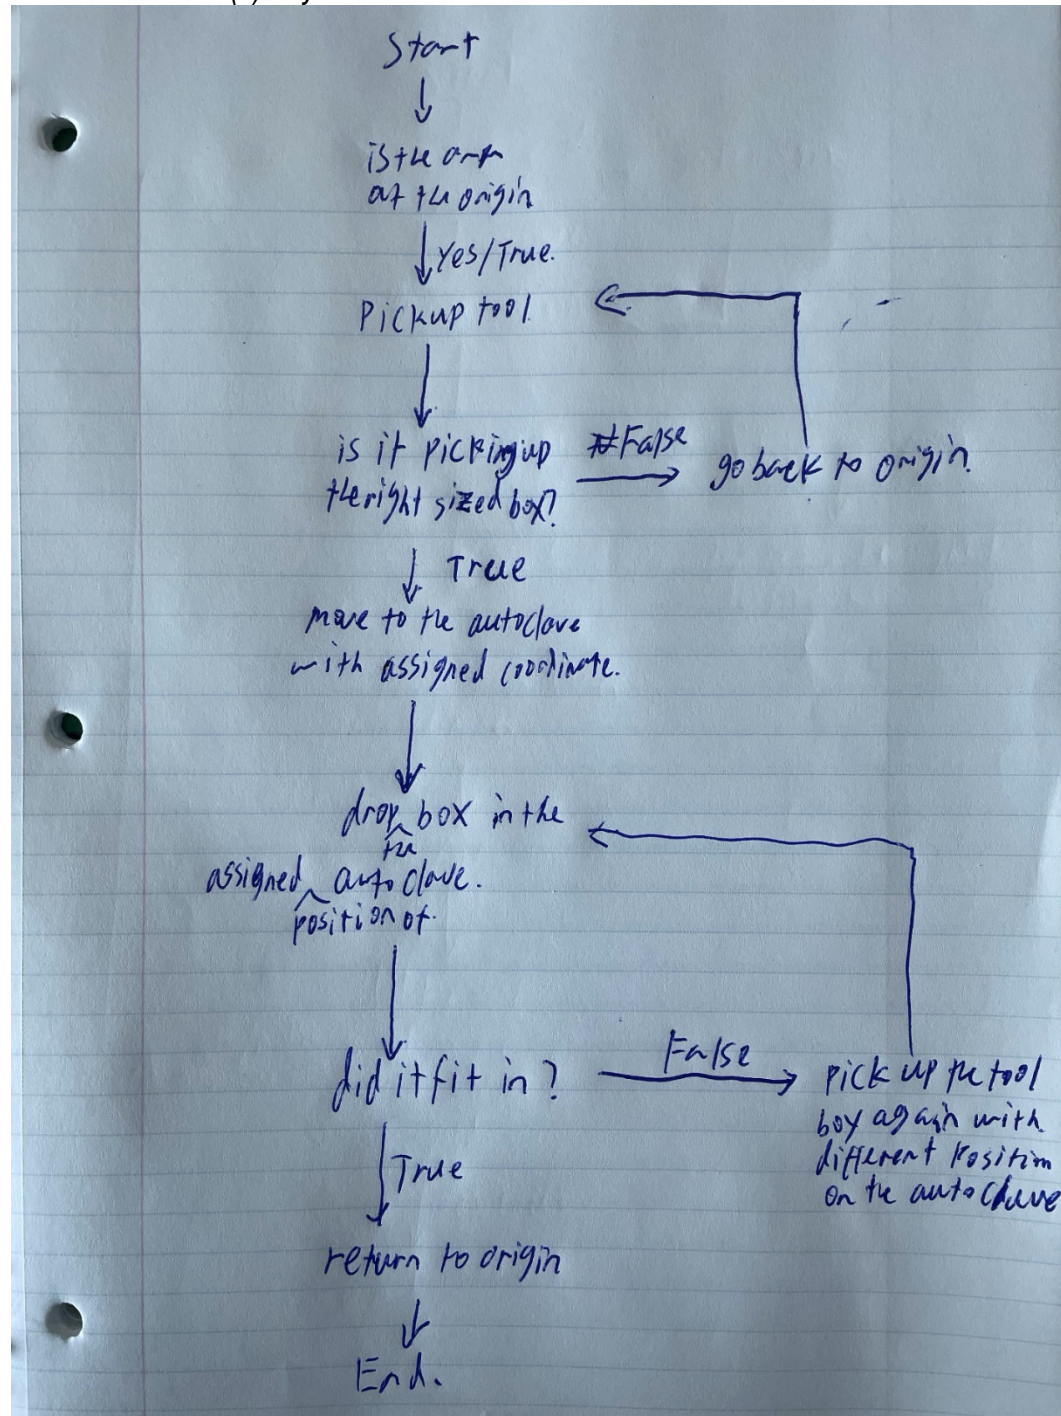 Start
is the arm
at the origin
Yes/True.
Pickup tool
is it picking up
the right sized box?
False
go back to origin.
True
move to the autoclave
with assigned coordinate.
drop the box in the
assigned position of autoclave.
did it fit in?
False
pick up the tool
box again with
different position
on the autoclave
True
return to origin
End.